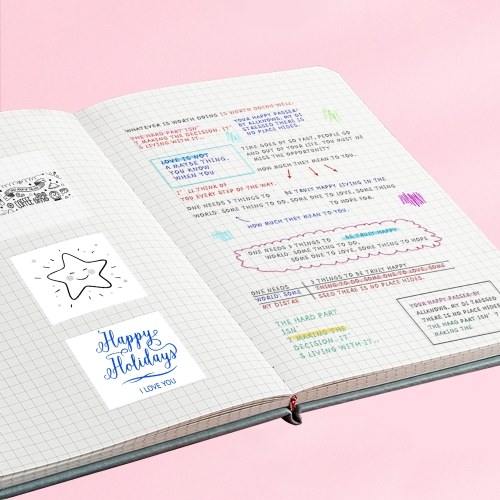 Happy
Holidays
I LOVE YOU
WHATEVER IS WORTH DOING IS WORTH DOING WELL.
THE HARD PART ISN'
T MAKING THE DECISION. IT'
S LIVING WITH IT...
YOUR HAPPY PASSER/
BY ALLKNOWS, MY DI
STRESSED THERE IS
NO PLACE HIDES.
LOVE IS NOT
A MAYBE THING.
YOU KNOW
WHEN YOU
TIME GOES BY SO FAST, PEOPLE GO
AND OUT OF YOUR LIFE. YOU MUST NE
MISS THE OPPORTUNITY
HOW MUCH THEY MEAN TO YOU.
I' LL THINK OF
YOU EVERY STEP OF THE WAY.
ONE NEEDS 3 THINGS TO BE TRULY HAPPY LIVING IN THE
WORLD: SOME THING TO DO, SOME ONE TO LOVE, SOME THING
TO HOPE FOR.
HOW MUCH THEY MEAN TO YOU
ONE NEEDS 3 THINGS TO BE TRULY HAPPY
WORLD: SOME THING TO DO,
SOME ONE TO LOVE, SOME THING TO HOPE
ONE NEEDS 3 THINGS TO BE TRULY HAPPY
WORLD: SOME THING TO DO, SOME ONE TO LOVE, SOME
MY DISTRE SSED THERE IS NO PLACE HIDES.
THE HARD PART
ISN
T MAKING THE
DECISION. IT
S LIVING WITH IT...
YOUR HAPPY PASSER/BY
ALLKNOWS, MY DI TRESSED
THERE IS NO PLACE HIDES
THE HARD PART ISN' T
MAKING THE